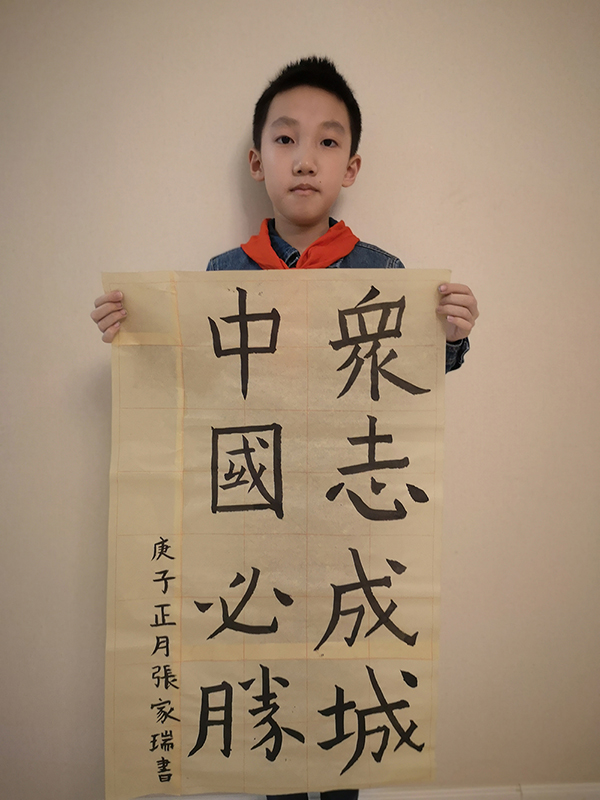 衆志成城
中國必勝
庚子正月張家瑞書